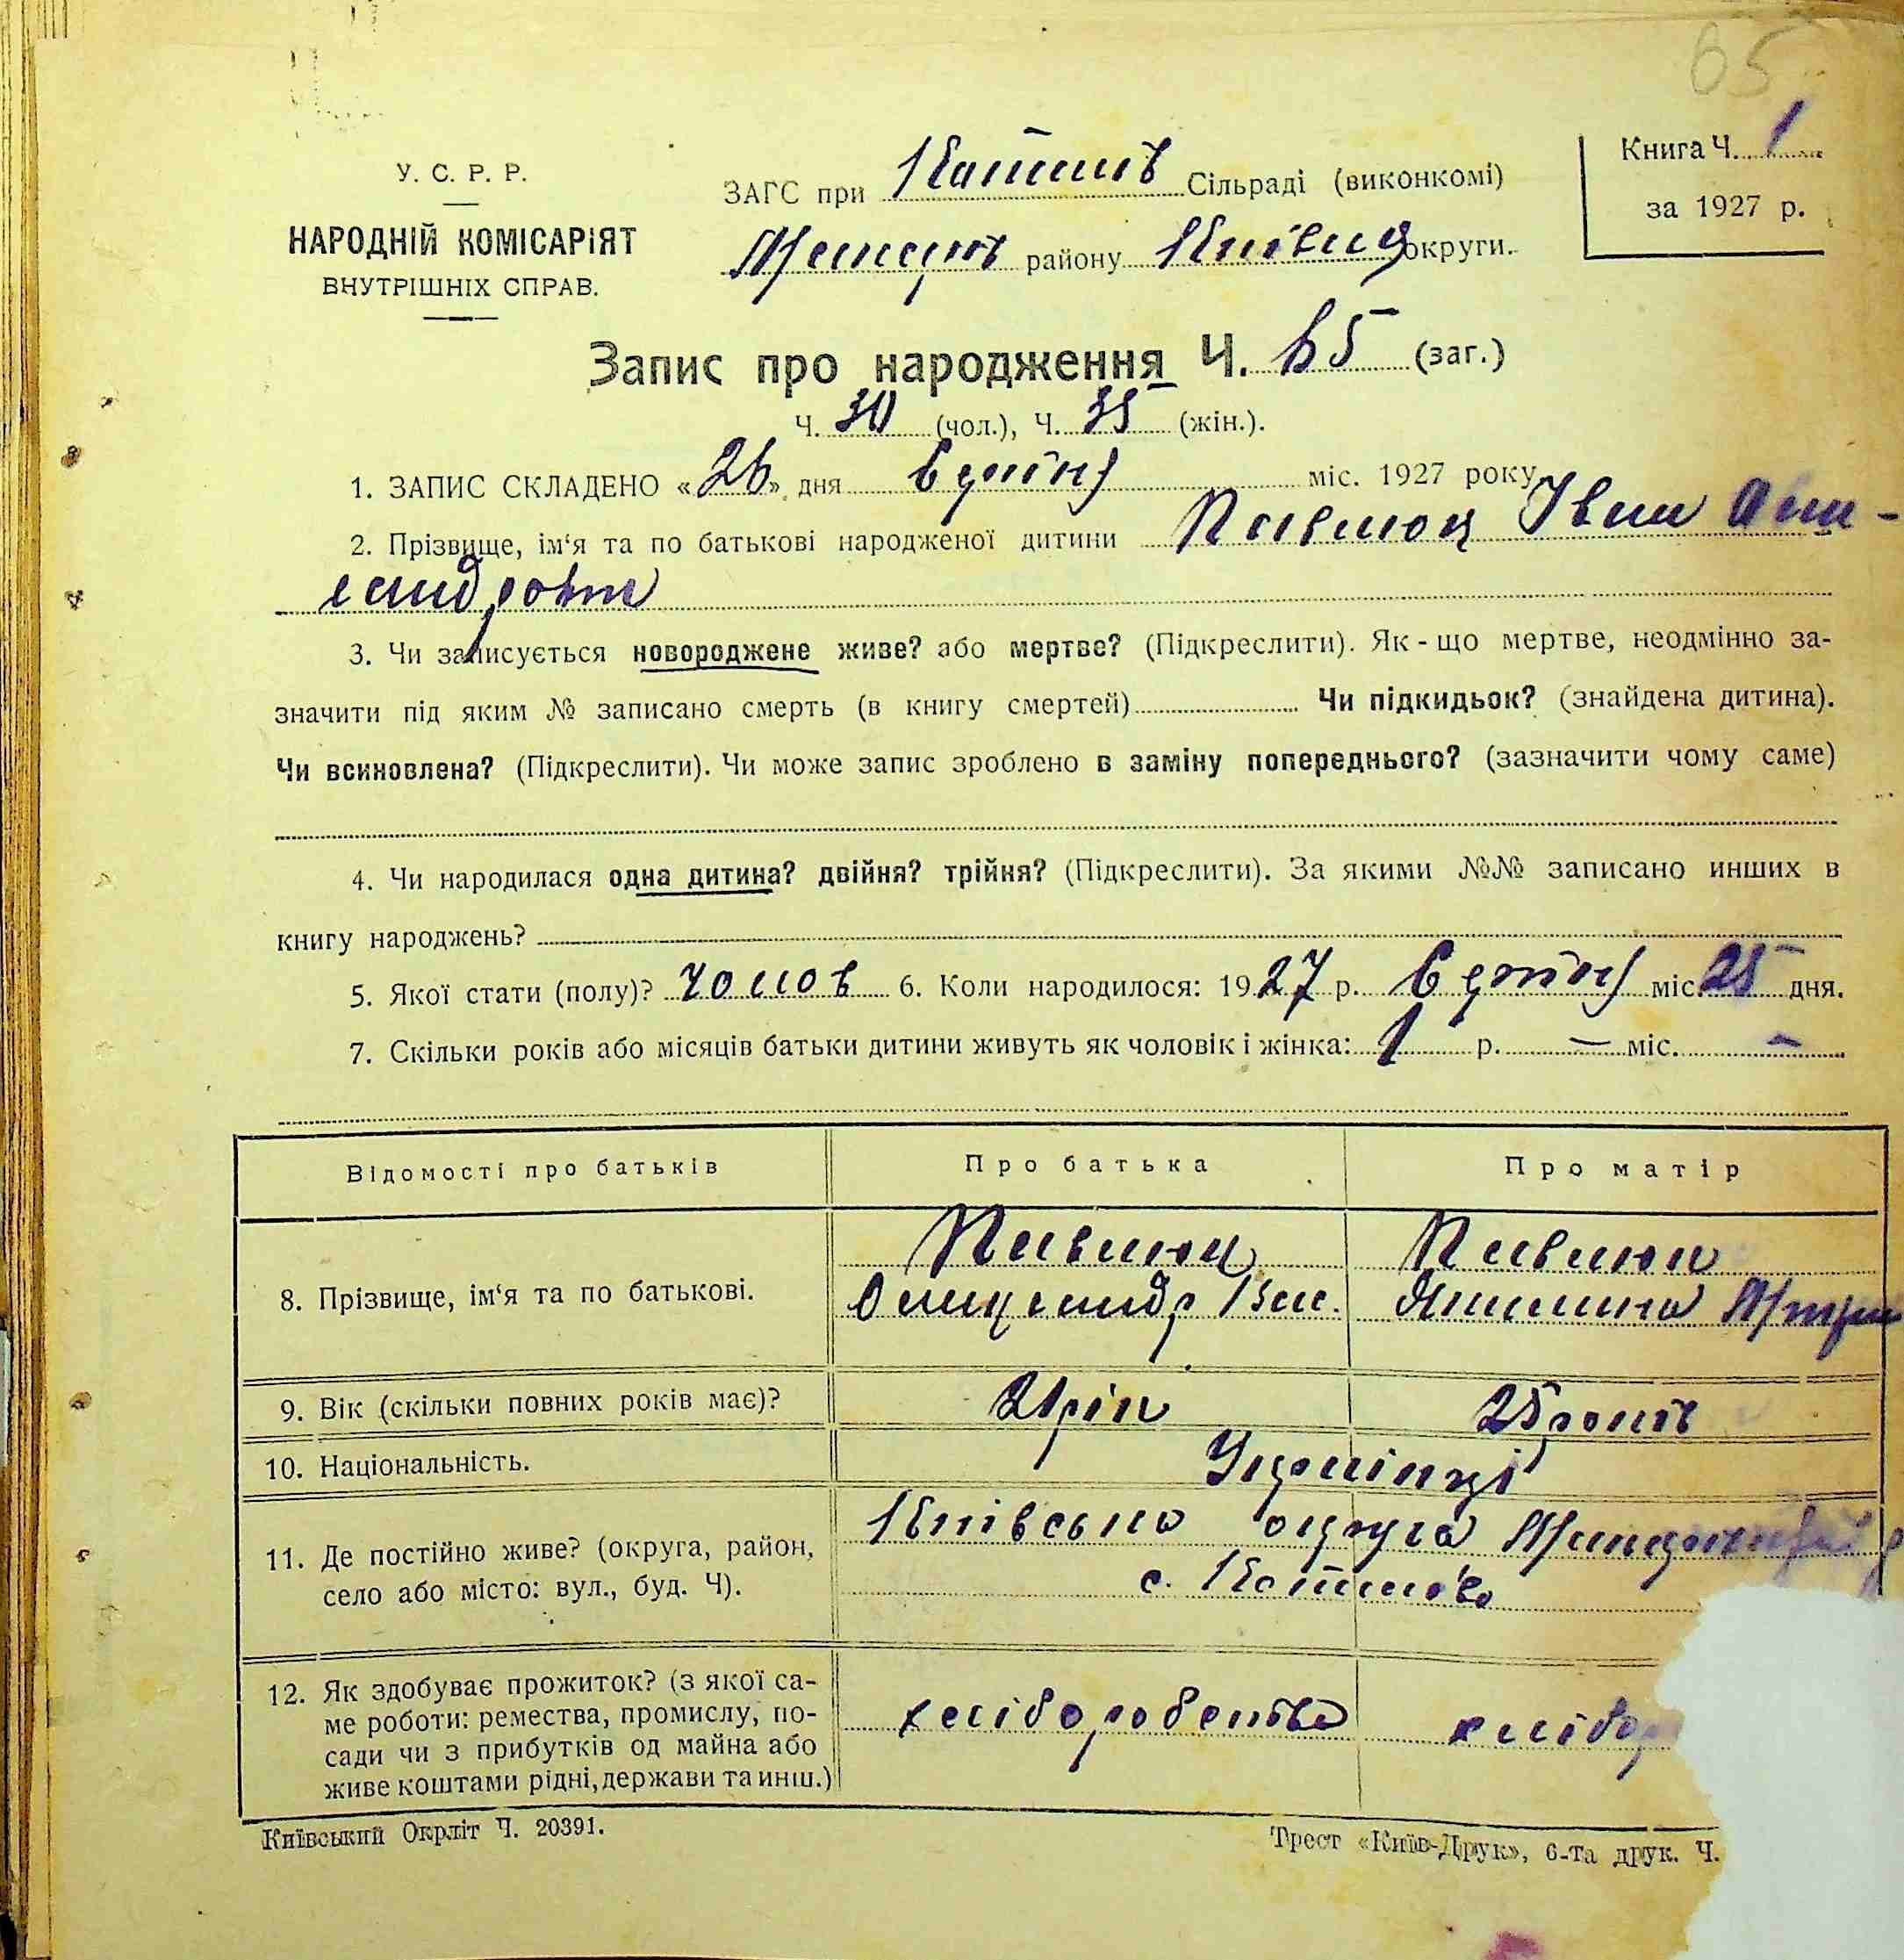 65
У. С. Р. Р.
НАРОДНІЙ КОМІСАРІЯТ
ВНУТРІШНІХ СПРАВ.
ЗАГС при Сільраді (виконкомі)
району округи.
Книга Ч. 1
за 1927 р.
Запис про народження Ч. 65 (заг.)
Ч. 30 (чол.), Ч. 35 (жін.).
1. ЗАПИС СКЛАДЕНО «26» дня Серпня міс. 1927 року
2. Прізвище, ім‘я та по батькові народженої дитини Павлюк Іван
3. Чи записується новороджене живе? або мертве? (Підкреслити). Як-що мертве, неодмінно за-
значити під яким № записано смерть (в книгу смертей) Чи підкидьок? (знайдена дитина).
Чи всиновлена? (Підкреслити). Чи може запис зроблено в заміну попереднього? (зазначити чому саме)
4. Чи народилася одна дитина? двійня? трійня? (Підкреслити). За якими №№ записано инших в
книгу народжень?
5. Якої стати (полу)? чолов 6. Коли народилося: 1927 р. Серпня міс. 25 дня.
7. Скільки років або місяців батьки дитини живуть як чоловік і жінка: 1 р. — міс. —
Відомості про батьків Про батька Про матір
8. Прізвище, ім‘я та по батькові. Павлюк Павлюк
Олександр Вас.
9. Вік (скільки повних років має)? 21 рік 25 років
10. Національність. Українці
11. Де постійно живе? (округа, район, Київська округа
село або місто: вул., буд. Ч). с.
12. Як здобуває прожиток? (з якої са-
ме роботи: ремества, промислу, по- хліборобство хлібор
сади чи з прибутків од майна або
живе коштами рідні, держави та инш.)
Київський Окрліт Ч. 20391. Трест «Київ-Друк», 6-та друк. Ч.